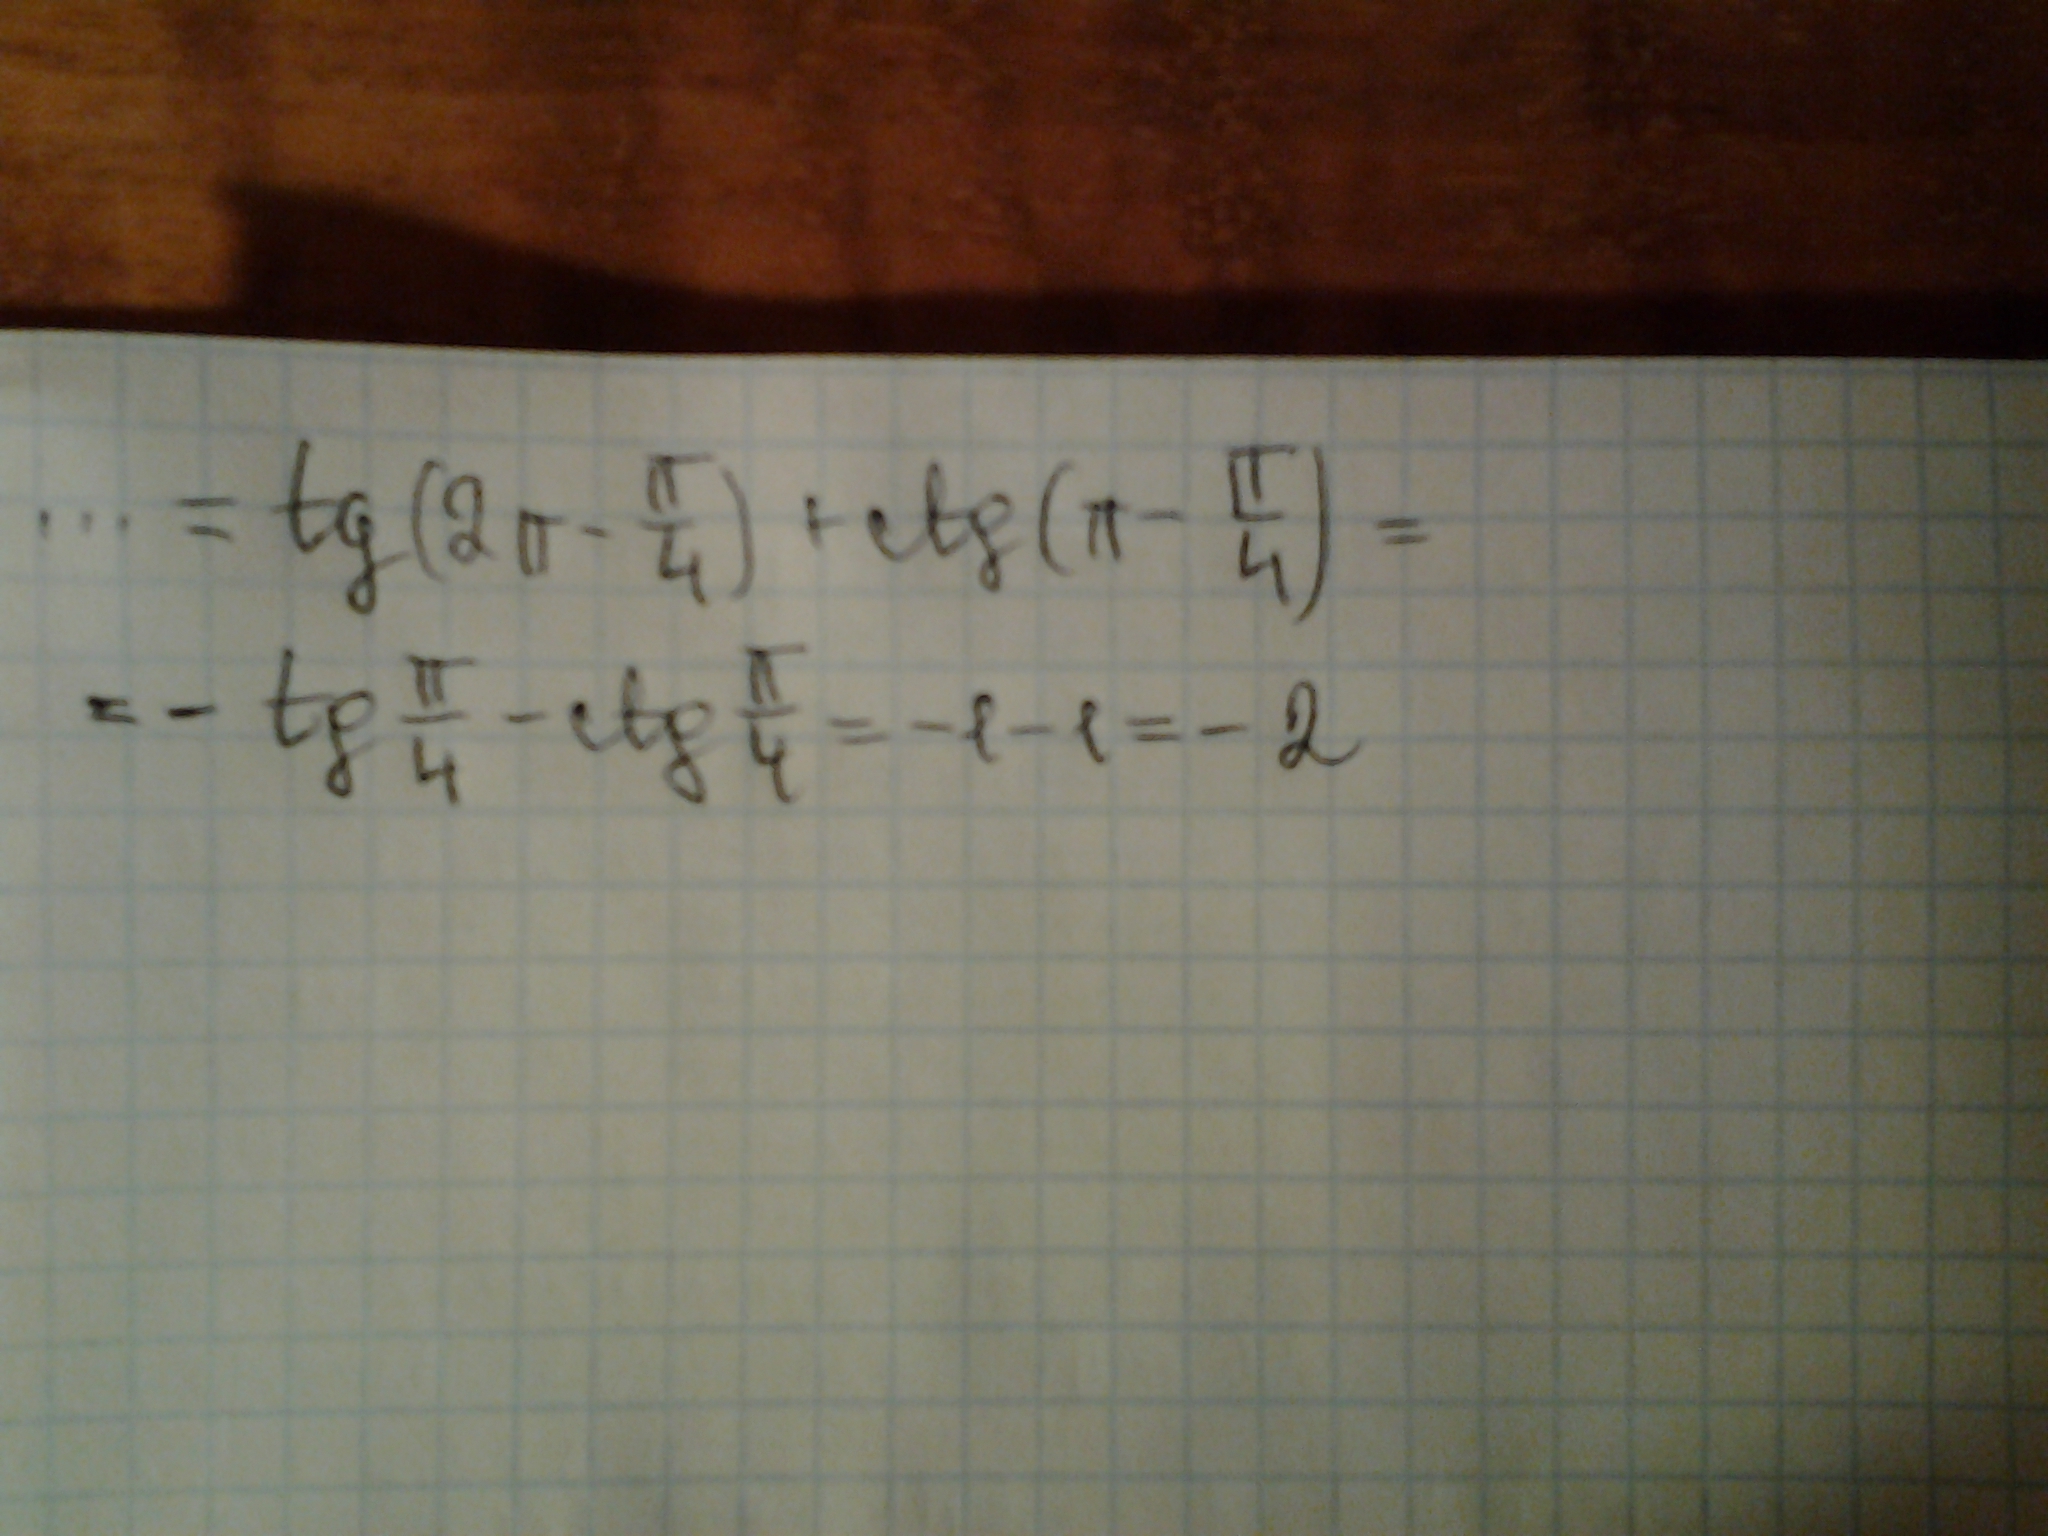 ... = tg(2π - π/4) + ctg(π - π/4) =
= - tg π/4 - ctg π/4 = -1 - 1 = - 2